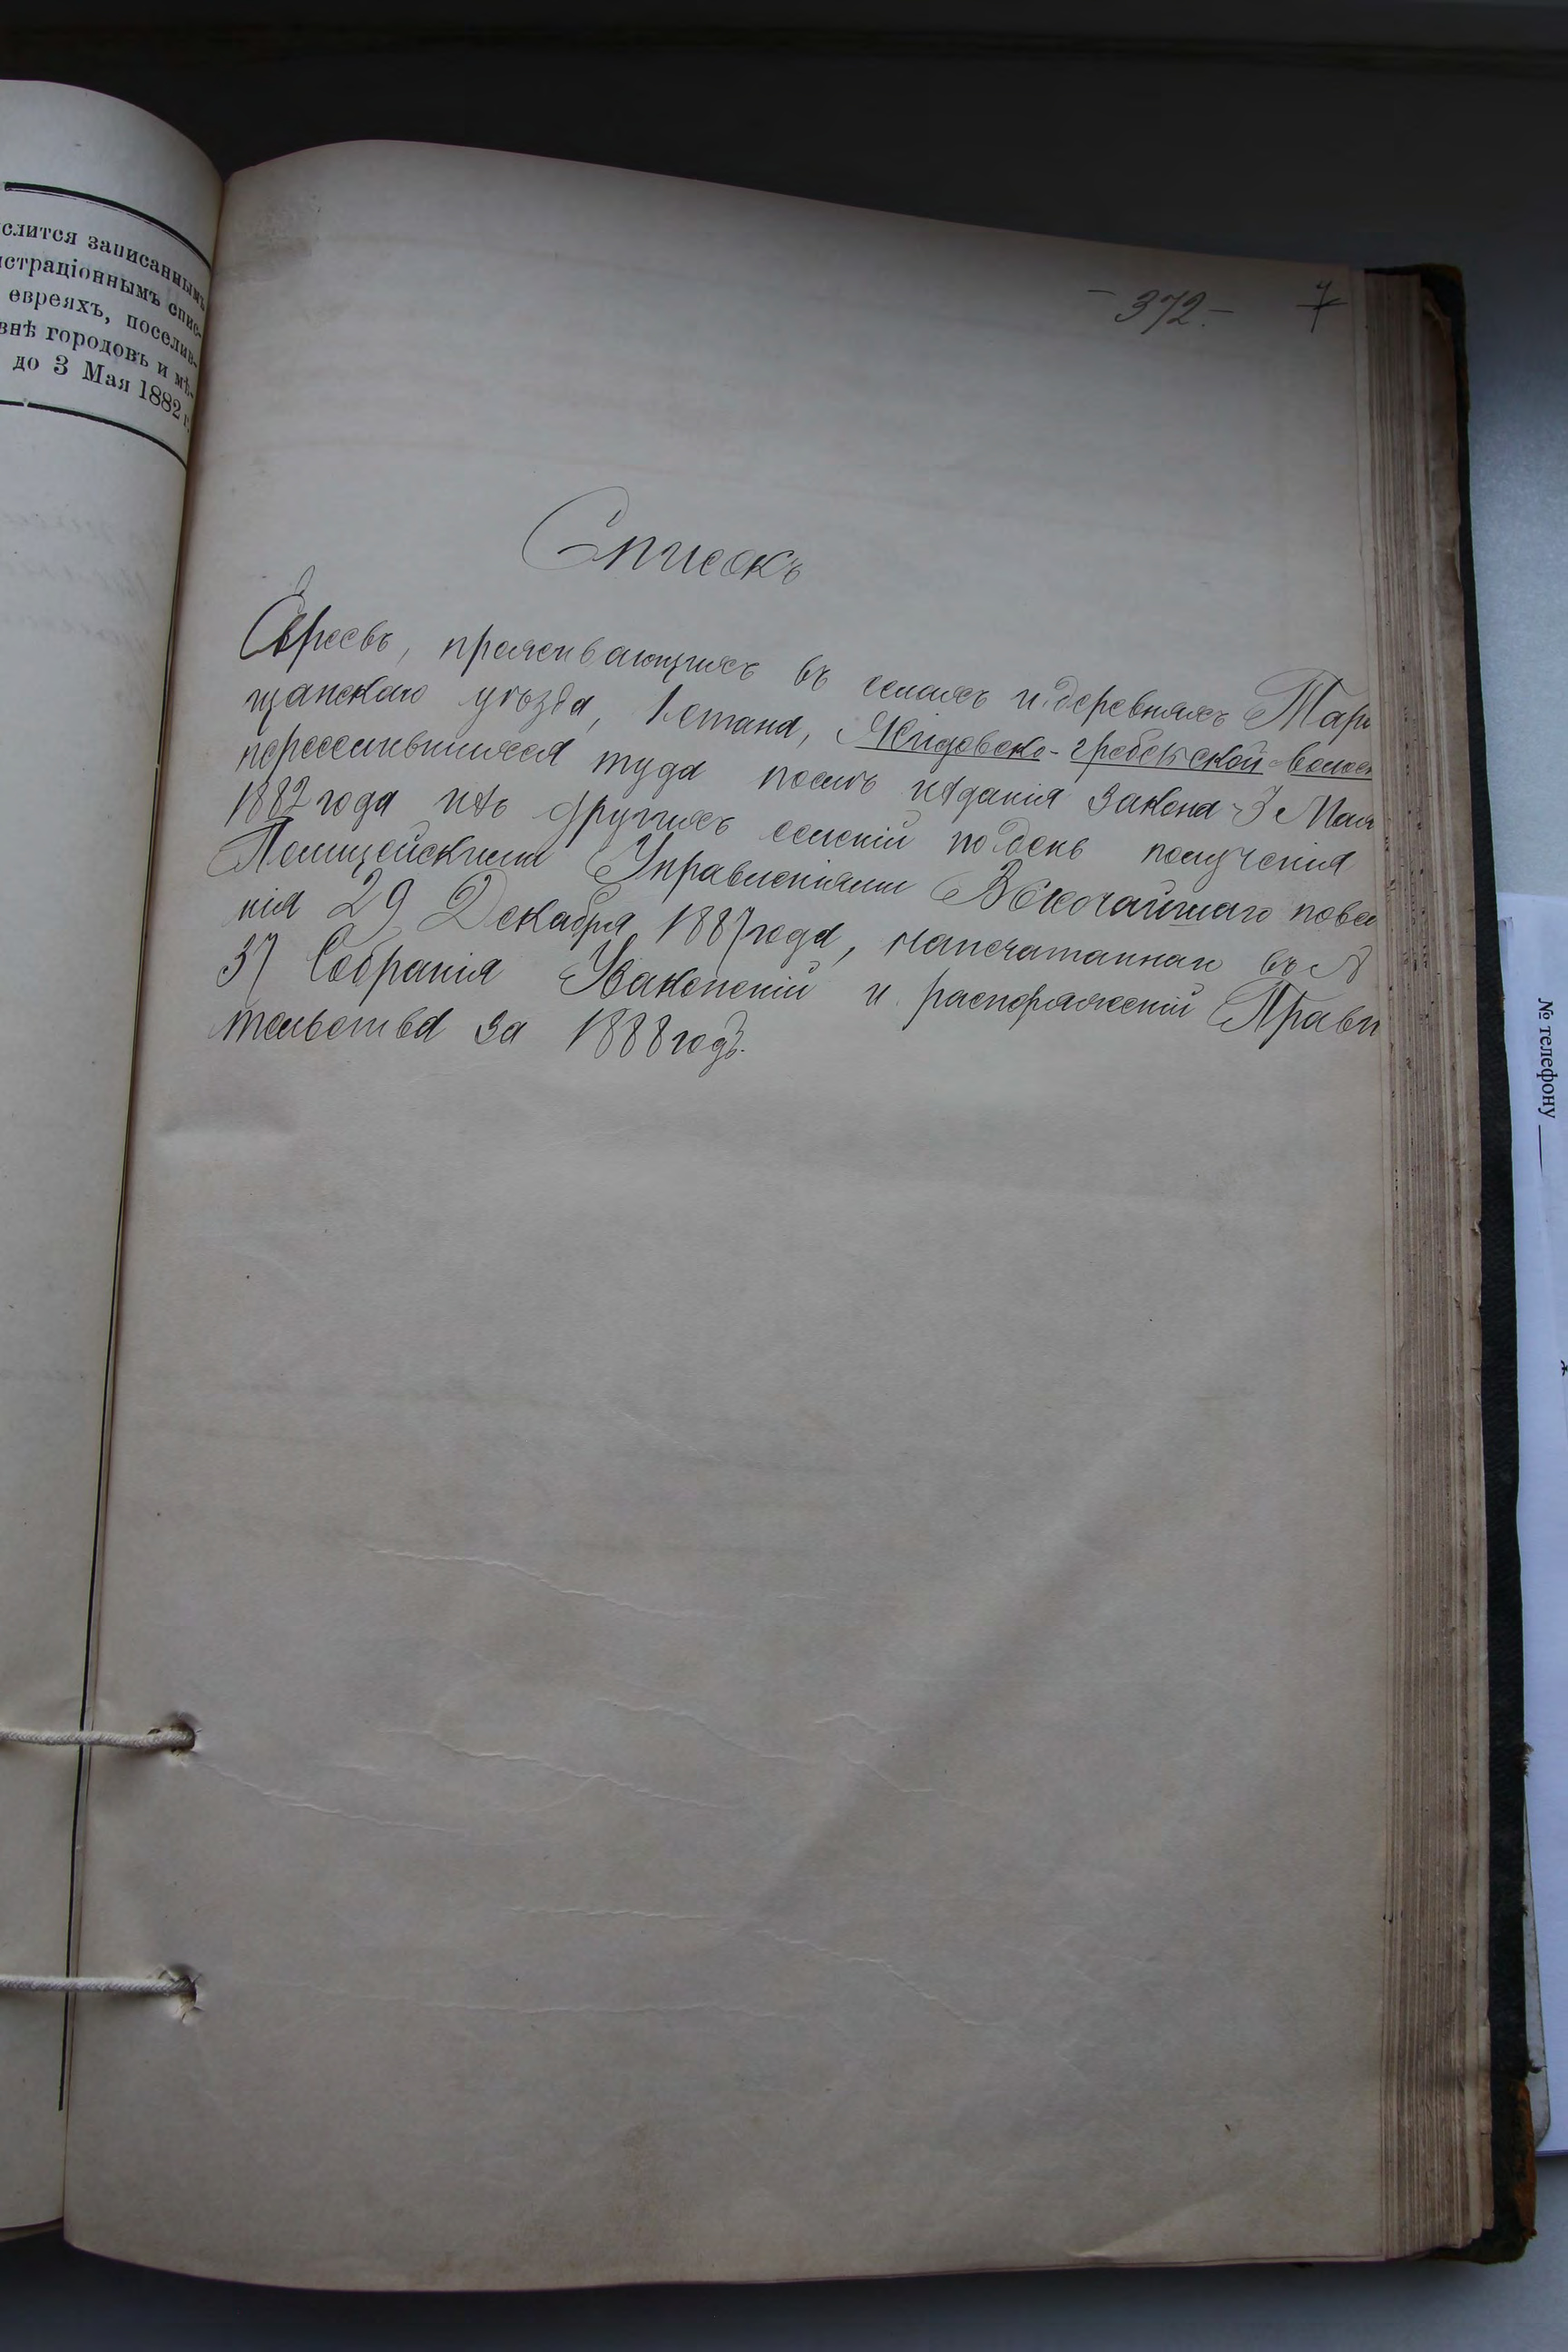 слится записаннымъ
истраціоннымъ спис-
евреяхъ, поселив-
внѣ городовъ и мѣ-
до 3 Мая 1882 г.
- 372. -
Списокъ
Евреевъ, проживающихъ въ селахъ и деревняхъ Тара
щанскаго уѣзда, 1 стана, Жидовско-гребельской волос
переселившихся туда послѣ изданія закона 3 Мая
1882 года изъ другихъ селеній по день полученія
Полицейскими Управленіями Высочайшаго повел
нія 29 Декабря 1887 года, напечатаннаго въ №
37 Собранія Узаконеній и распоряженій Прави
тельства за 1888 годъ.
№ телефону